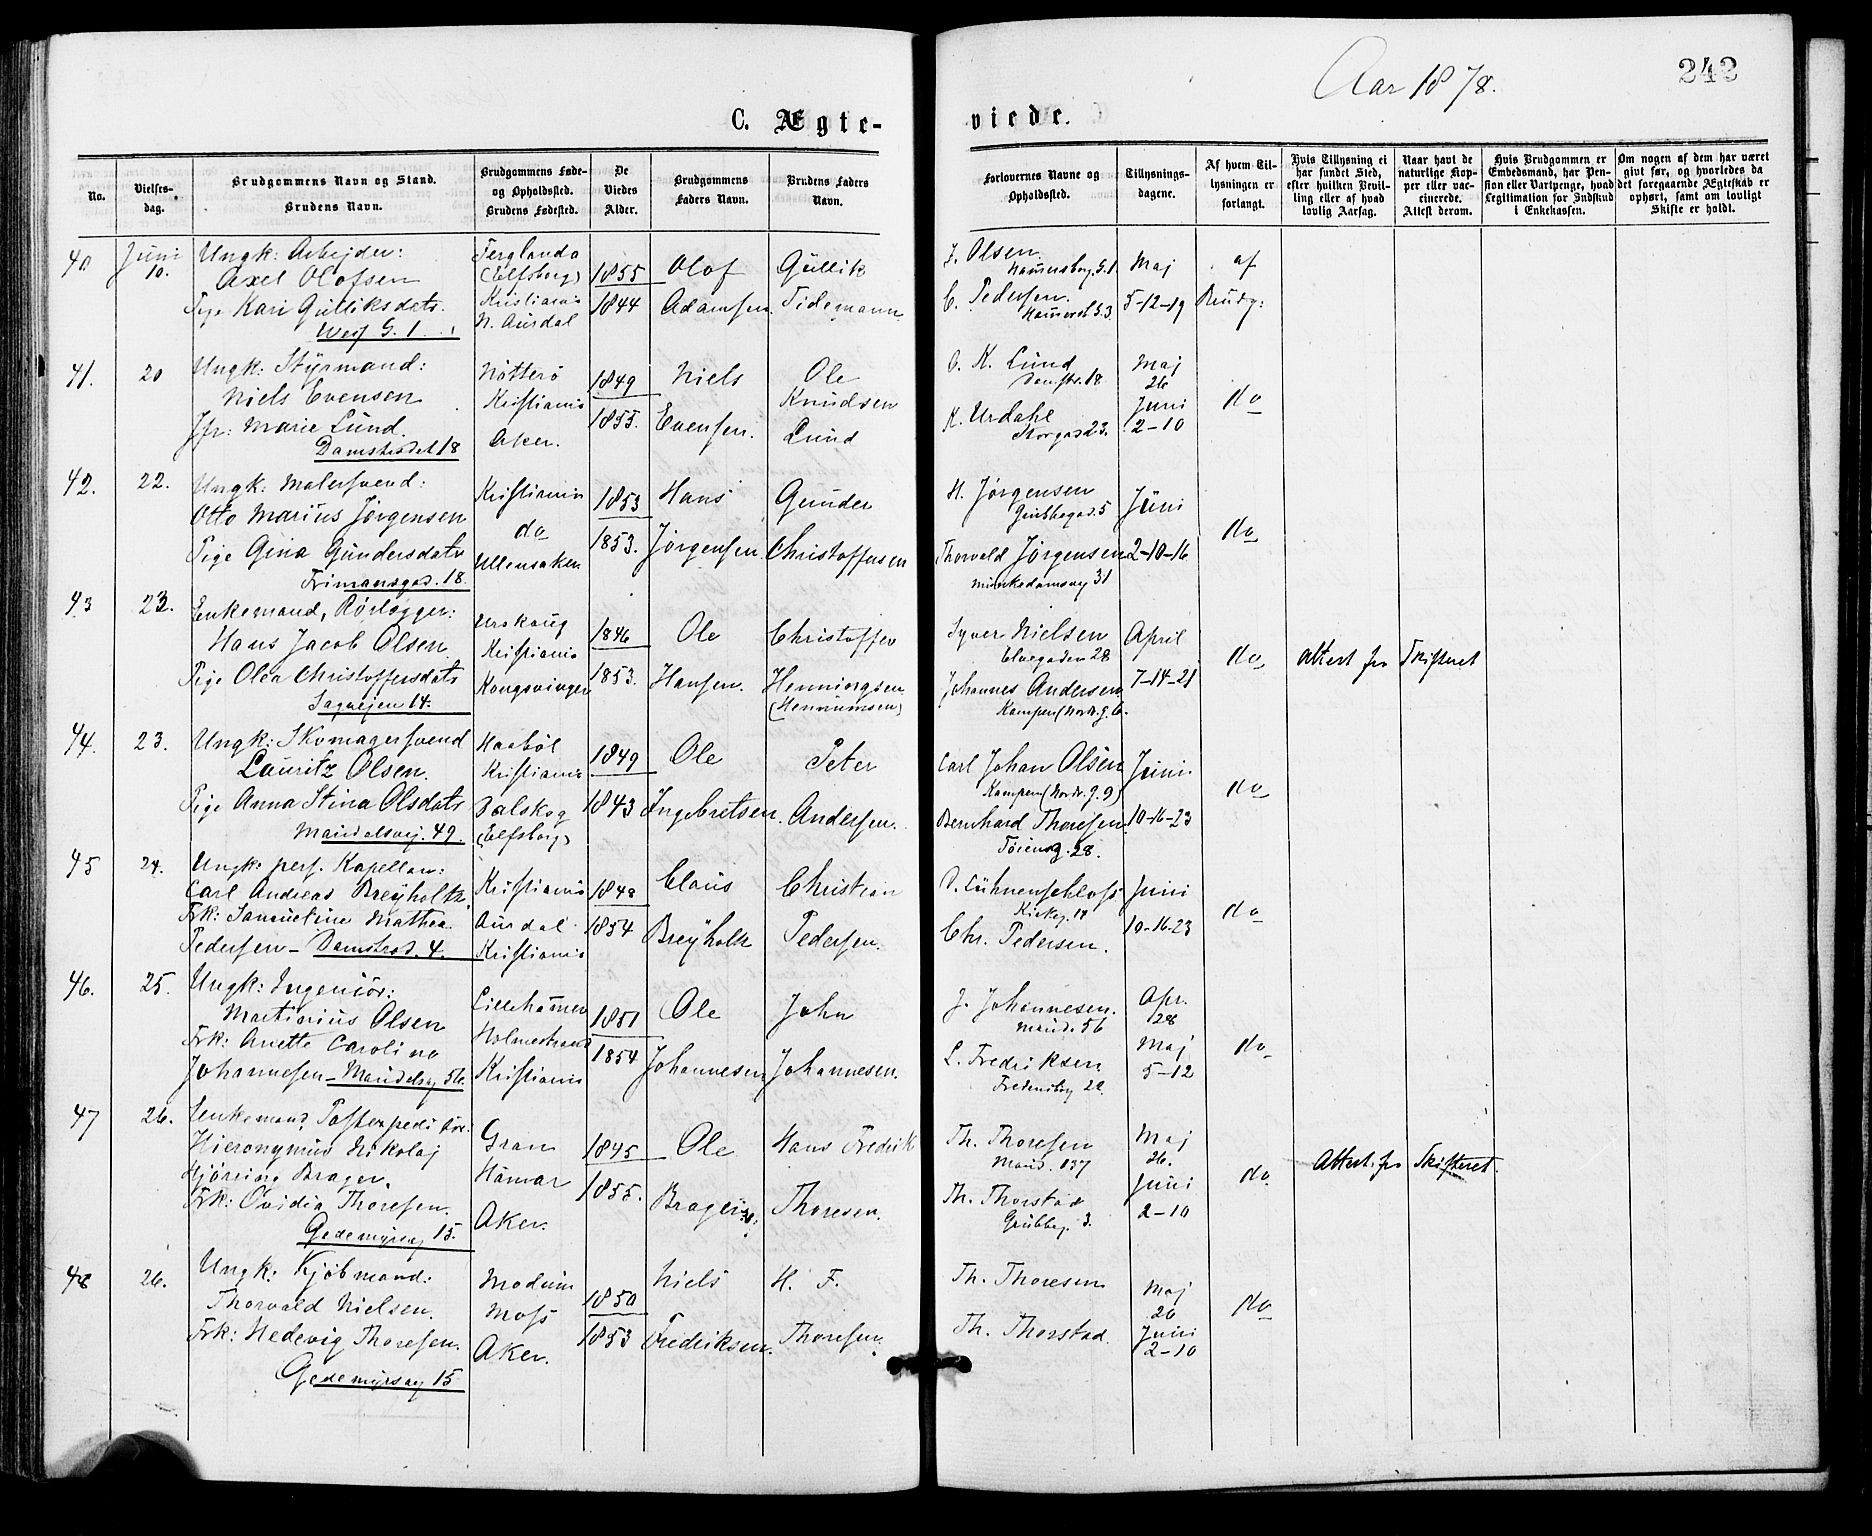 Aar 1878.
243
C. Ægte-
viede.
No.
Vielses-
dag.
Brudgommens Navn og Stand.
Brudens Navn.
Brudgommens Føde-
og Opholdssted.
Brudens Fødested.
De
Viedes
Alder.
Brudgommens
Faders Navn.
Brudens Faders
Navn.
Forlovernes Navne og
Opholdssted.
Tillysnings-
dagene.
Af hvem Til-
lysningen er
forlangt.
Hvis Tillysning ei
har fundet Sted,
efter hvilken Bevil-
ling eller af hvad
lovlig Aarsag.
Naar havt de
naturlige Kop-
per eller vac-
cinerede.
Attest derom.
Hvis Brudgommen er
Embedsmand, har Pen-
sion eller Vartpenge, hvad
Legitimation for Indskud
i Enkekassen.
Om nogen af dem har været
givt før, og hvorledes da
det foregaaende Ægteskab er
ophørt, samt om lovligt
Skifte er holdt.
40
Juni
10.
Ungk: Arbejder:
Axel Olofsen
Pige Kari Gulliksdatr.
Ferglanda
(Elfsborg)
Kristiania
N. Aurdal
1855
1844
Olof
Adamsen
Gullik
Tidemann
J. Olsen
C. Pedersen
Maj
5-12-19
af
Brudg:
41.
20
Ungk: Styrmand:
Niels Evensen
Jfr: Marie Lund.
Damstredet 18
Nøtterø
Kristiania
Aker.
1849
1855.
Niels
Evensen.
Ole
Knudsen
Lund
O. K. Lund
Damstr. 18
K. Urdahl
Storgad 23.
Maj
26
Juni
2-10
do
42.
22.
Ungk: Malersvend:
Otto Marius Jørgensen
Pige Gina Gundersdatr
Frimansgad. 18.
Kristiania
do
Ullensaker
1853
1853.
Hans
Jørgensen
Gunder
Christoffersen
H. Jørgensen
Thorvald Jørgensen
Munkedamsvej 31
Juni
2-10-16
do
43
23.
Enkemand, Rørlægger:
Hans Jacob Olsen
Pige Olea Christoffersdatr
Sagvejen 14.
Urskoug
Kristiania
Kongsvinger
1846
1853.
Ole
Hansen.
Christoffer
Henningsen
(Hennumsen)
Syver Nielsen
Elvegaden 28
Johannes Andersen
Kampen (Nordr. g. 6.
April
7-14-21
do
Attest fra Skifteret
44.
23.
Ungk: Skomagersvend
Lauritz Olsen.
Pige Anna Stina Olsdatr
Maridalsvej. 49.
Haabøl
Kristiania
Dalskog
(Elfsborg)
1849
1843
Ole
Ingebretsen.
Peter
Andersen.
Carl Johan Olsen
Kampen (Nordr. g. 9)
Bernhard Thoresen
Tøieng. 28.
Juni.
10-16-23
do
45
24.
Ungk: pers. Kapellan:
Carl Andreas Breyholtz
Frk: Jaquetine Mathea
Pedersen - Damstred. 4.
Kristiania
Aurdal
Kristiania
1848
1854
Claus
Breyholtz
Christian
Pedersen.
D. Lühnenschloss
Kirkeg. 14
Chr. Pedersen.
Juni
10-16-23
do
46.
25.
Ungk: Ingeniør:
Martinius Olsen
Frk: Anette Caroline
Johannesen - Maridalsvej 56.
Lillehamer
Holmestrand
Kristiania
1851
1854
Ole
Johannesen
John
Johannesen.
J. Johannesen.
Marid. 56
L. Fredriksen
Fredensborg 20.
Apr.
28
Maj
5-12
do
47
26.
Enkemand Postexpeditør:
Hieronymus Nikolaj
Hjøring Brager.
Frk: Ovidia Thoresen.
Gedemyrsvej 15.
Gran
Hamar
Aker.
1845
1855.
Ole
Brager
Hans Fredrik
Thoresen.
Th. Thoresen
Marid. 137
Th. Thorstad
Grubbeg. 3.
Maj
26.
Juni
2-10
do
Attest fra Skifteret.
48
26.
Ungk: Kjøbmand:
Thorvald Nielsen.
Frk: Hedevig Thoresen.
Gedemyrsvej 15
Modum
Moss
Aker.
1850
1853
Niels
Fredriksen.
H. F.
Thoresen.
Th. Thoresen
Th. Thorstad
Maj
26
Juni
2-10
do